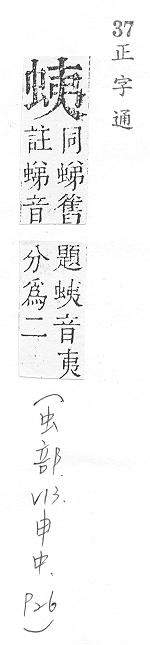 37
正字通
蛦
同蝭舊
註蝭音
題蛦音夷
分爲二
(虫部.V13.申中.P26)